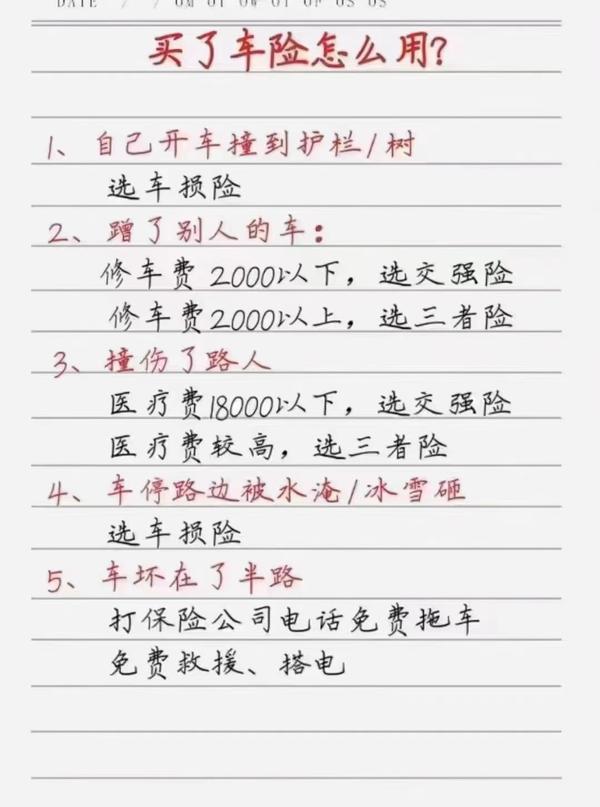 DATE / /
买了车险怎么用?
1、自己开车撞到护栏/树
选车损险
2、蹭了别人的车:
修车费2000以下,选交强险
修车费2000以上,选三者险
3、撞伤了路人
医疗费18000以下,选交强险
医疗费较高,选三者险
4、车停路边被水淹/冰雪砸
选车损险
5、车坏在了半路
打保险公司电话免费拖车
免费救援、搭电